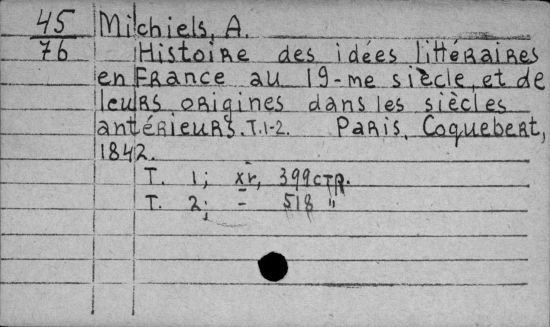 45 Michiels, A.
76 Histoire des idées littéraires
en France au 19-me siècle, et de
leurs origines dans les siècles
antérieurs. T.1-2. Paris, Coquebert,
1842.
T. 1; xv, 399 стр.
T. 2; - 518 "